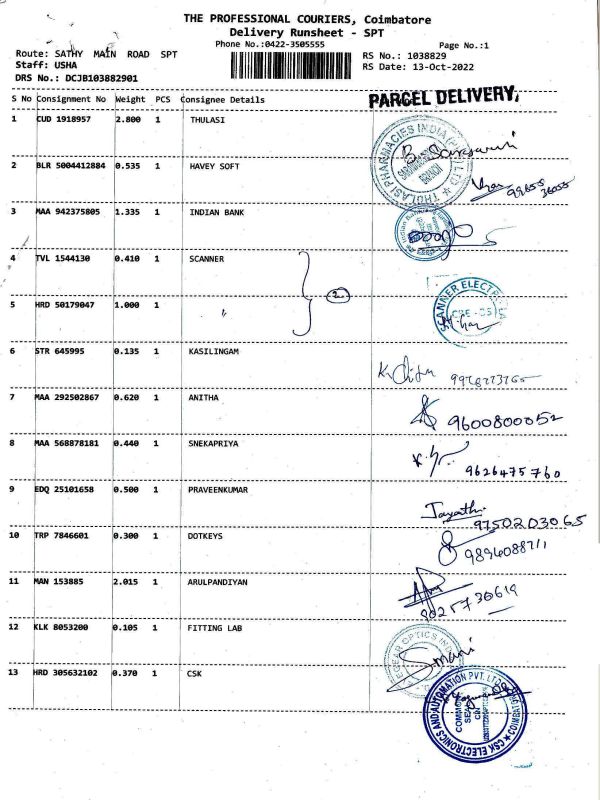 THE PROFESSIONAL COURIERS, Coimbatore
Delivery Runsheet - SPT
Phone No.:0422-3505555 Page No.:1
Route: SATHY MAIN ROAD SPT RS No.: 1038829
Staff: USHA RS Date: 13-Oct-2022
DRS No.: DCJB103882901
S No Consignment No Weight PCS Consignee Details PARCEL DELIVERY.
1 CUD 1918957 2.800 1 THULASI
THULASI PHARMACIES INDIA (P) LTD
BRANCH
2 BLR 5004412884 0.535 1 HAVEY SOFT
3 MAA 942375805 1.335 1 INDIAN BANK
4 TVL 1544130 0.410 1 SCANNER
2
5 HRD 50179047 1.000 1 "
SCANNER
CBE
6 STR 645995 0.135 1 KASILINGAM
7 MAA 292502867 0.620 1 ANITHA
9600800052
8 MAA 568878181 0.440 1 SNEKAPRIYA
9626475760
9 EDQ 25101658 0.500 1 PRAVEENKUMAR
9750203065
10 TRP 7846601 0.300 1 DOTKEYS
11 MAN 153885 2.015 1 ARULPANDIYAN
12 KLK 8053200 0.105 1 FITTING LAB
Smani
13 HRD 305632102 0.370 1 CSK
CSK ELECTRONICS AND AUTOMATION PVT. LTD.
COMMON
SEAL